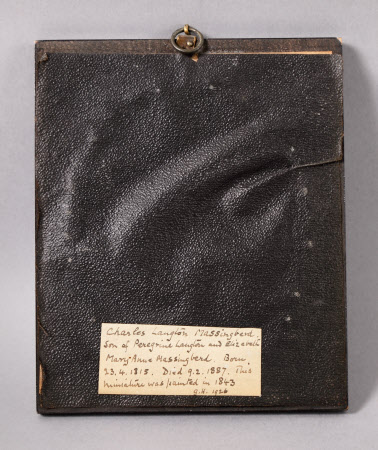 Charles Langton Massingberd.
Son of Peregrine Langton and Elizabeth
Mary Anne Massingberd. Born
23.4.1815. Died 9.2.1887. This
miniature was painted in 1843
g.H. 1926